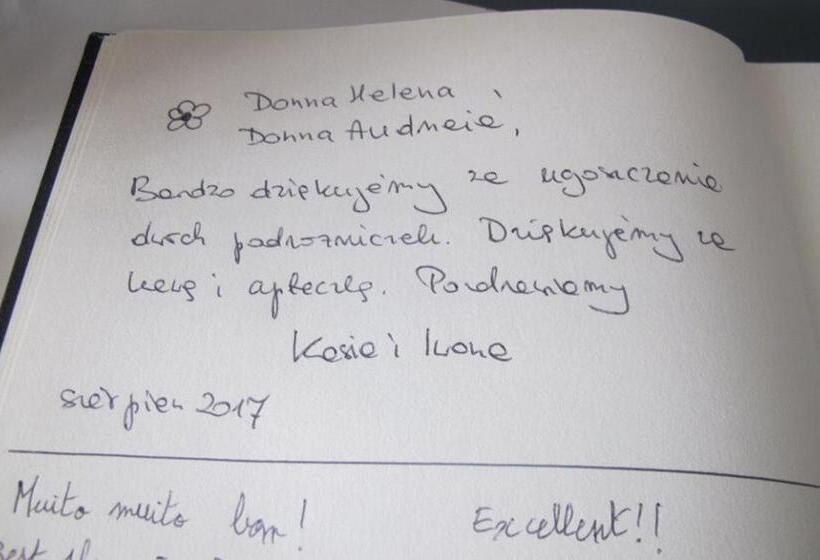 Donna Helena,
Donna Audneia,
Bardzo dziękujemy za ugoszczenie
dwóch podrożniczek. Dziękujemy za
kawę i apteczkę. Pozdrawiamy
Kasia i Iwona
sierpień 2017
Muito muito bom!
Excellent!!